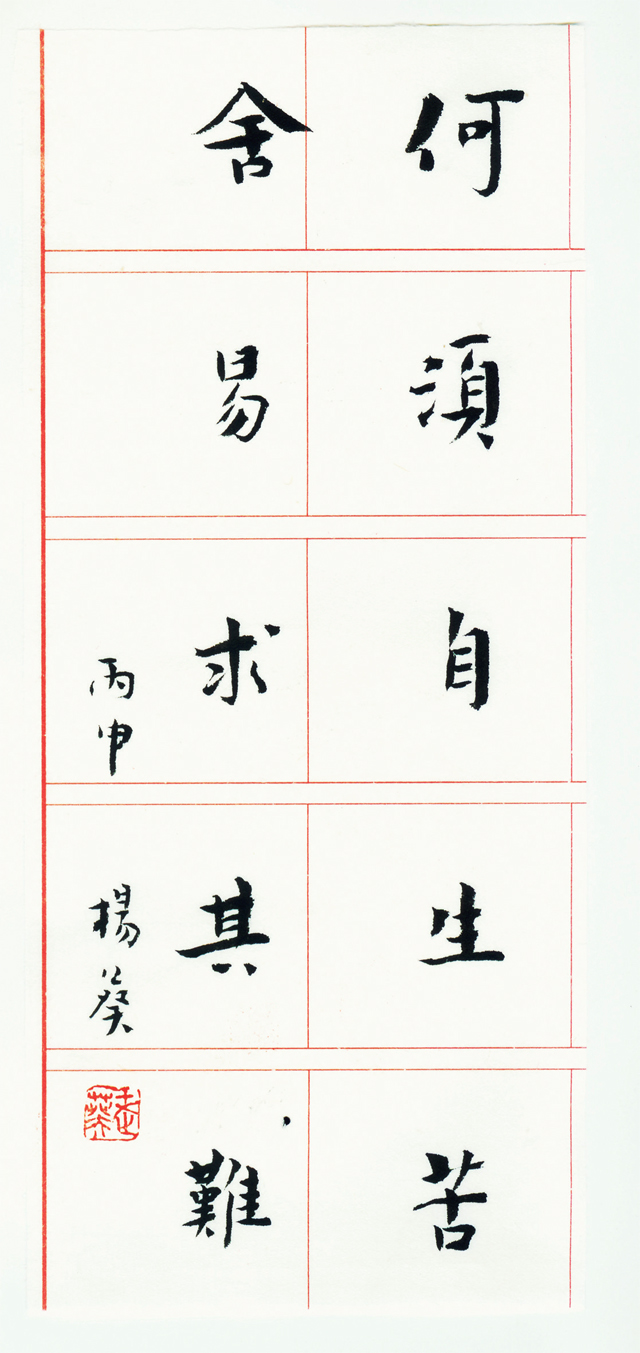 何須自生苦
舍易求其難
丙申
楊葵